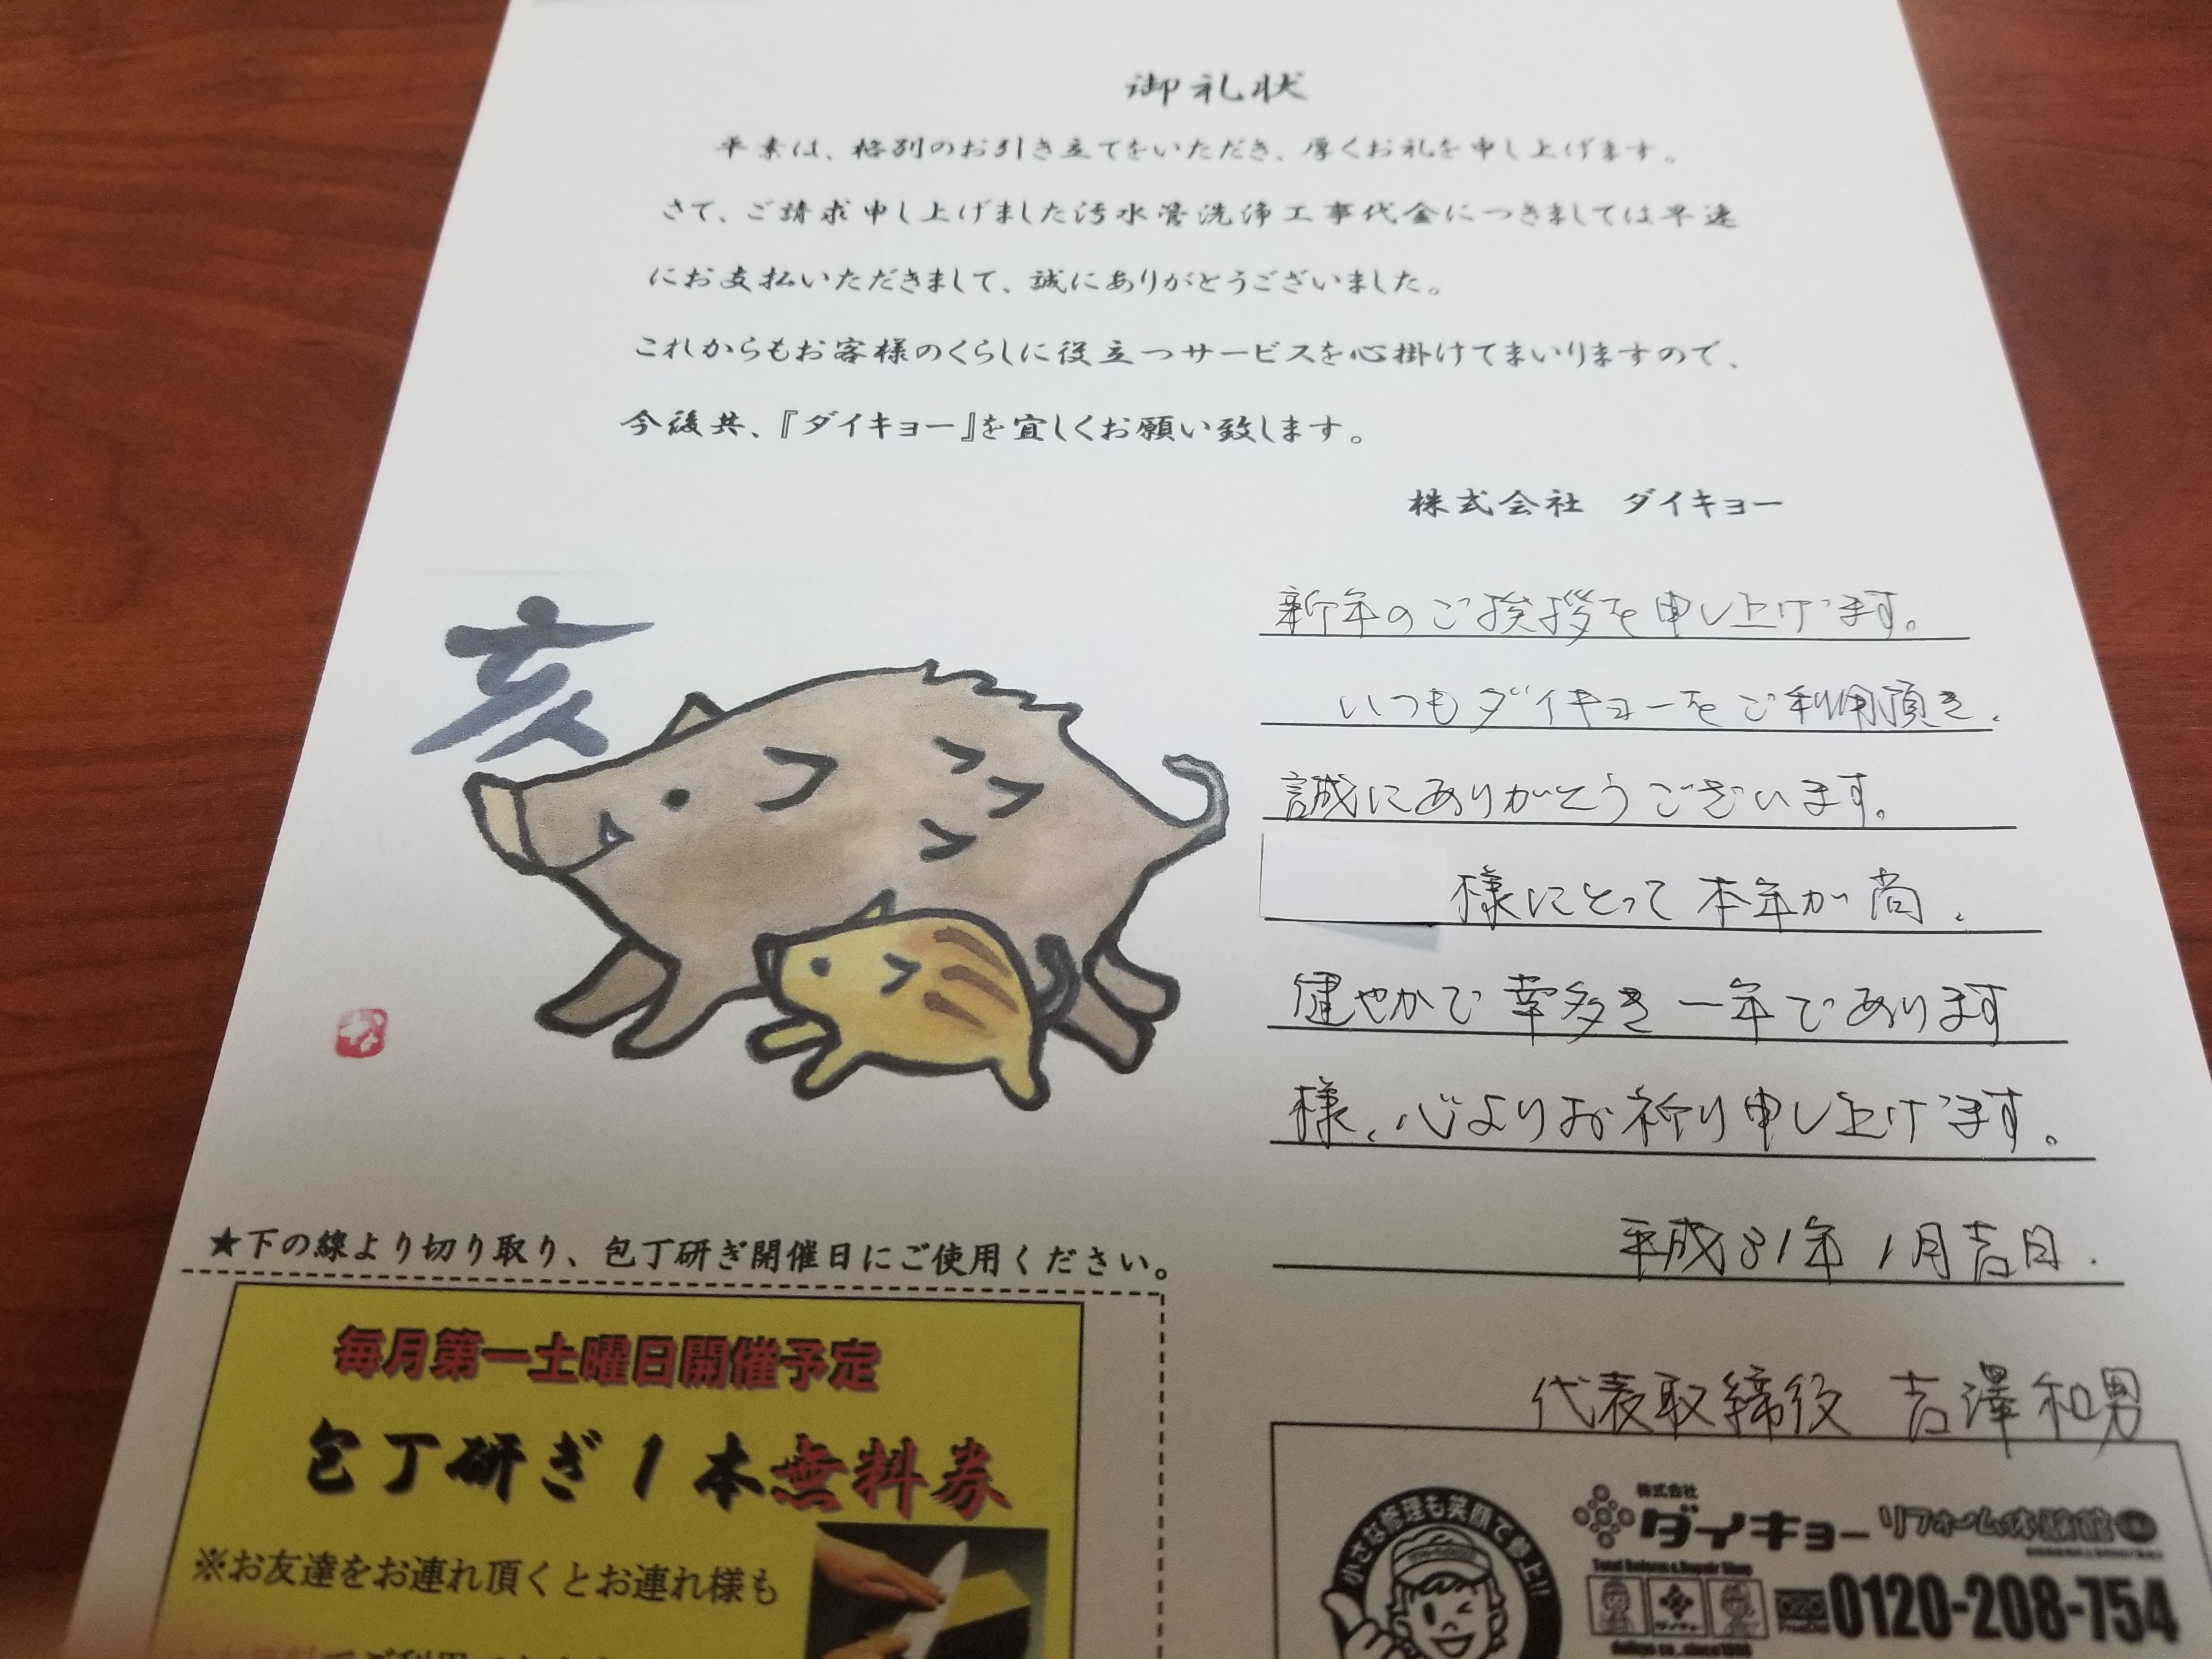 御礼状
平素は、格別のお引き立てをいただき、厚くお礼を申し上げます。
さて、ご請求申し上げました汚水管洗浄工事代金につきましては早速
にお支払いただきまして、誠にありがとうございました。
これからもお客様のくらしに役立つサービスを心掛けてまいりますので、
今後共、『ダイキョー』を宜しくお願い致します。
株式会社 ダイキョー
亥
新年のご挨拶を申し上げます。
いつもダイキョーをご利用頂き、
誠にありがとうございます。
様にとって本年が尚、
健やかで幸多き一年であります
様、心よりお祈り申し上げます。
平成31年1月吉日.
代表取締役 吉澤和男
な
★下の線より切り取り、包丁研ぎ開催日にご使用ください。
毎月第一土曜日開催予定
包丁研ぎ1本無料券
※お友達をお連れ頂くとお連れ様も
小さな修理も笑顔で参上!!
株式会社
ダイキョー リフォーム体験館
Total Reform & Repair Shop
0120-208-754